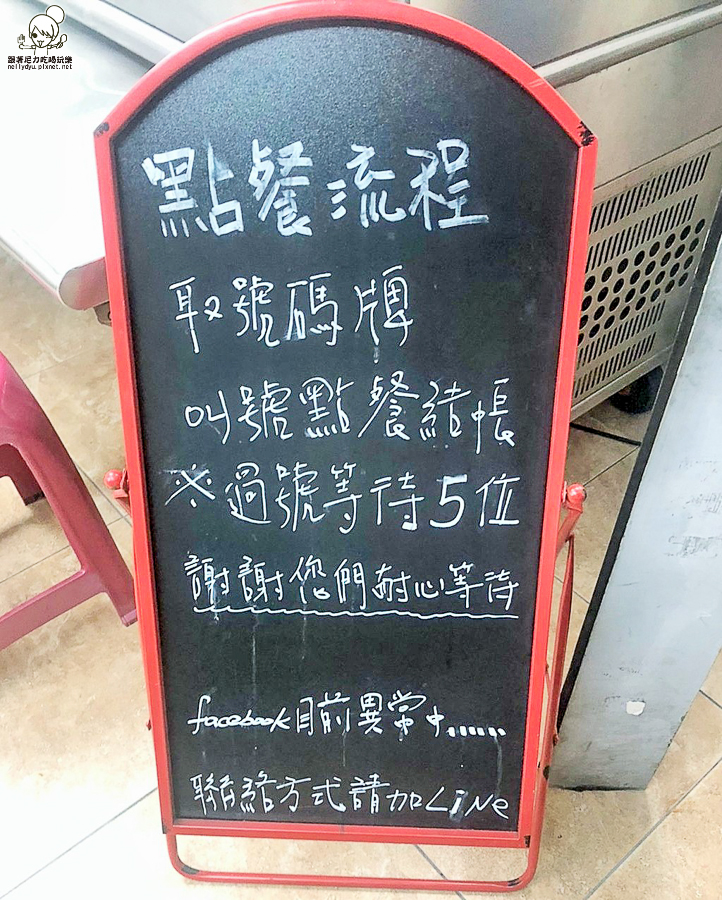 跟著尼力吃喝玩樂
nellydyu.pixnet.net
點餐流程
取號碼牌
叫號點餐結帳
※過號等待5位
謝謝您們耐心等待
facebook目前異常中......
聯絡方式請加LiNe